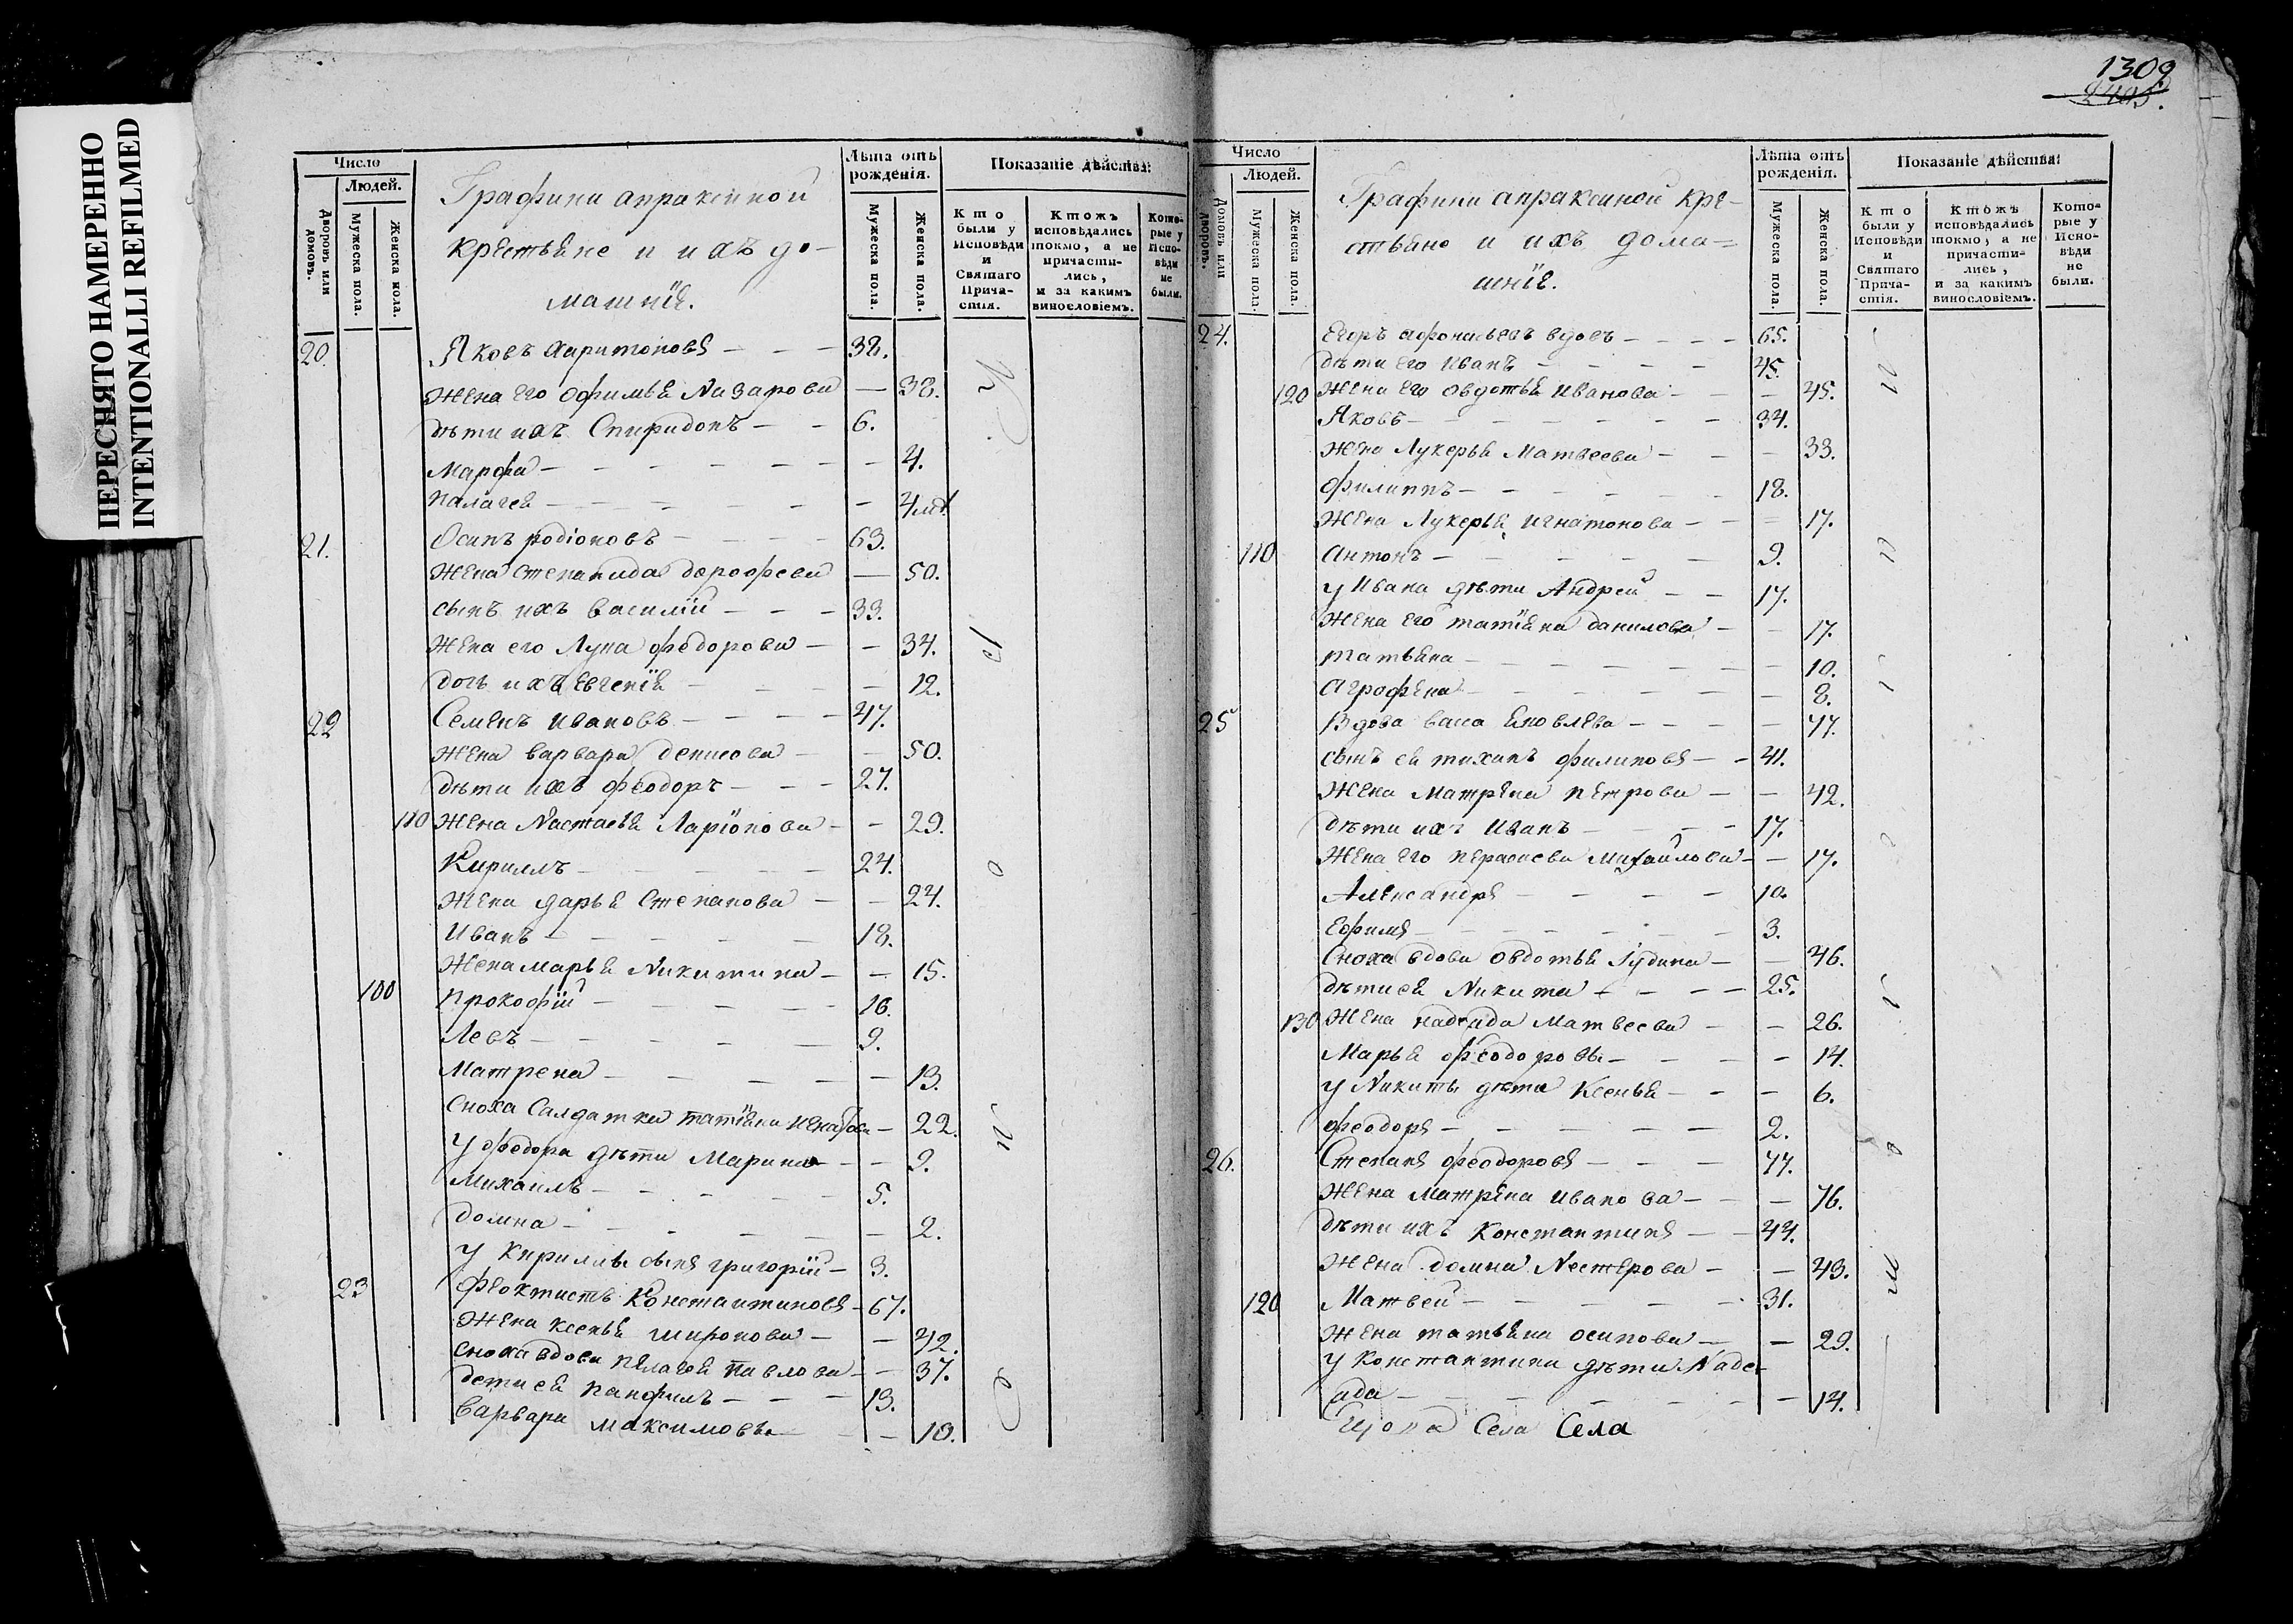 ПЕРЕСНЯТО НАМЕРЕННО
INTENTIONALLI REFILMED
Число
Людей.
Дворовъ или домовъ.
Мужеска пола.
Женска пола.
Графини апраксиной
крестьяне и ихъ до-
машнїя.
Лѣта отъ рожденія.
Мужеска пола.
Женска пола.
Показаніе дѣйства:
Кто были у Исповѣди и Святаго Прича-стія.
Ктожъ исповѣдались токмо, а не причасти-лись, и за какимъ винословіемъ.
Кото-рые у Испо-вѣди не были.
20. Яковъ харитоновъ — — — 38.
жена его офимья Назарова — 38.
дѣти ихъ Спиридонъ — — 6.
Марфа — — — — — — 4.
палагея — — — — — —
21. Осипъ родїоновъ — — — — 63.
жена степанида дорофеева — 50.
сынъ ихъ василїй — — — 33.
Жена его Лупа федорова — — 34.
дочь ихъ евгенїя — — — — 12.
22 Семенъ ивановъ — — — — 47.
жена варвара денисова — — 50.
дѣти ихъ феодоръ — — — 27.
110 жена Настасья Ларїонова — — 29.
Кириллъ — — — — — 24.
жена дарья Степанова — — 24.
Иванъ — — — — — 18.
Жена марья Никитина — — 15.
100 прокофїй — — — — — 16.
Левъ — — — — — 9.
Матрена — — — — — — 13.
сноха Салдатка татїяна — 22.
У феодора дѣти Марина — — 9.
Михаилъ — — — — — 5.
домна — — — — — — 2.
У Кирилы сынъ григорїй — 3.
23 феоктистъ Константиновъ — 67.
жена ксенья миронова — — 42.
сноха вдова пелагея павлова — — 37.
дети ея панфилъ — — — 13.
варвара максимовы — — 10.
1309
Число
Людей.
Домовъ или дворовъ.
Мужеска пола.
Женска пола.
Графини апраксиной кре-
стьяне и ихъ дома=
шнїе.
Лѣта отъ рожденія.
Мужеска пола.
Женска пола.
Показаніе дѣйства:
Кто были у Исповѣди и Святаго Прича-стія.
Ктожъ исповѣдались токмо, а не причасти-лись, и за какимъ винословіемъ.
Кото-рые у Испо-вѣди не были.
24. Егоръ афонасьевъ вдовъ — — — — 65.
дѣти его иванъ — — — — 45.
120 жена его овдотья иванова — — — 45.
Яковъ — — — — — — — 34.
жена Лукерья Матвеева — — — 33.
филиппъ — — — — — — 18.
жена Лукерья игнатонова — — — 17.
110 антонъ — — — — — — 9.
у ивана дѣти Андрей — — 17.
жена его татїяна данилова — — 17.
татьяна — — — — — — — 10.
аграфена — — — — — — — 8.
25 вдова васа яковлева — — — — 77.
сынъ ея тиханъ филиповъ — — 41.
жена матрена петрова — — 42.
дѣти ихъ иванъ — — — — 17.
жена его Михайлова — — 17.
Александръ — — — — 10.
ефимъ — — — — — — — 3.
Сноха вдова овдотья Іудина — — 46.
дѣти ея Никита — — — — 25.
130 жена надежда Матвеева — — 26.
Марья феодоровы — — — — 14.
у Никиты дѣти Ксенья — — — 6.
феодоръ — — — — — — 2.
26. Степанъ феодоровъ — — — 77.
жена матрена иванова — — — 76.
дѣти ихъ константинъ — — 44.
жена домна Нестерова — — 43.
120 Матвей — — — — — — 31.
жена татьяна осипова — — 29.
у константина дѣти
— — — — — — — 14.
Села Села